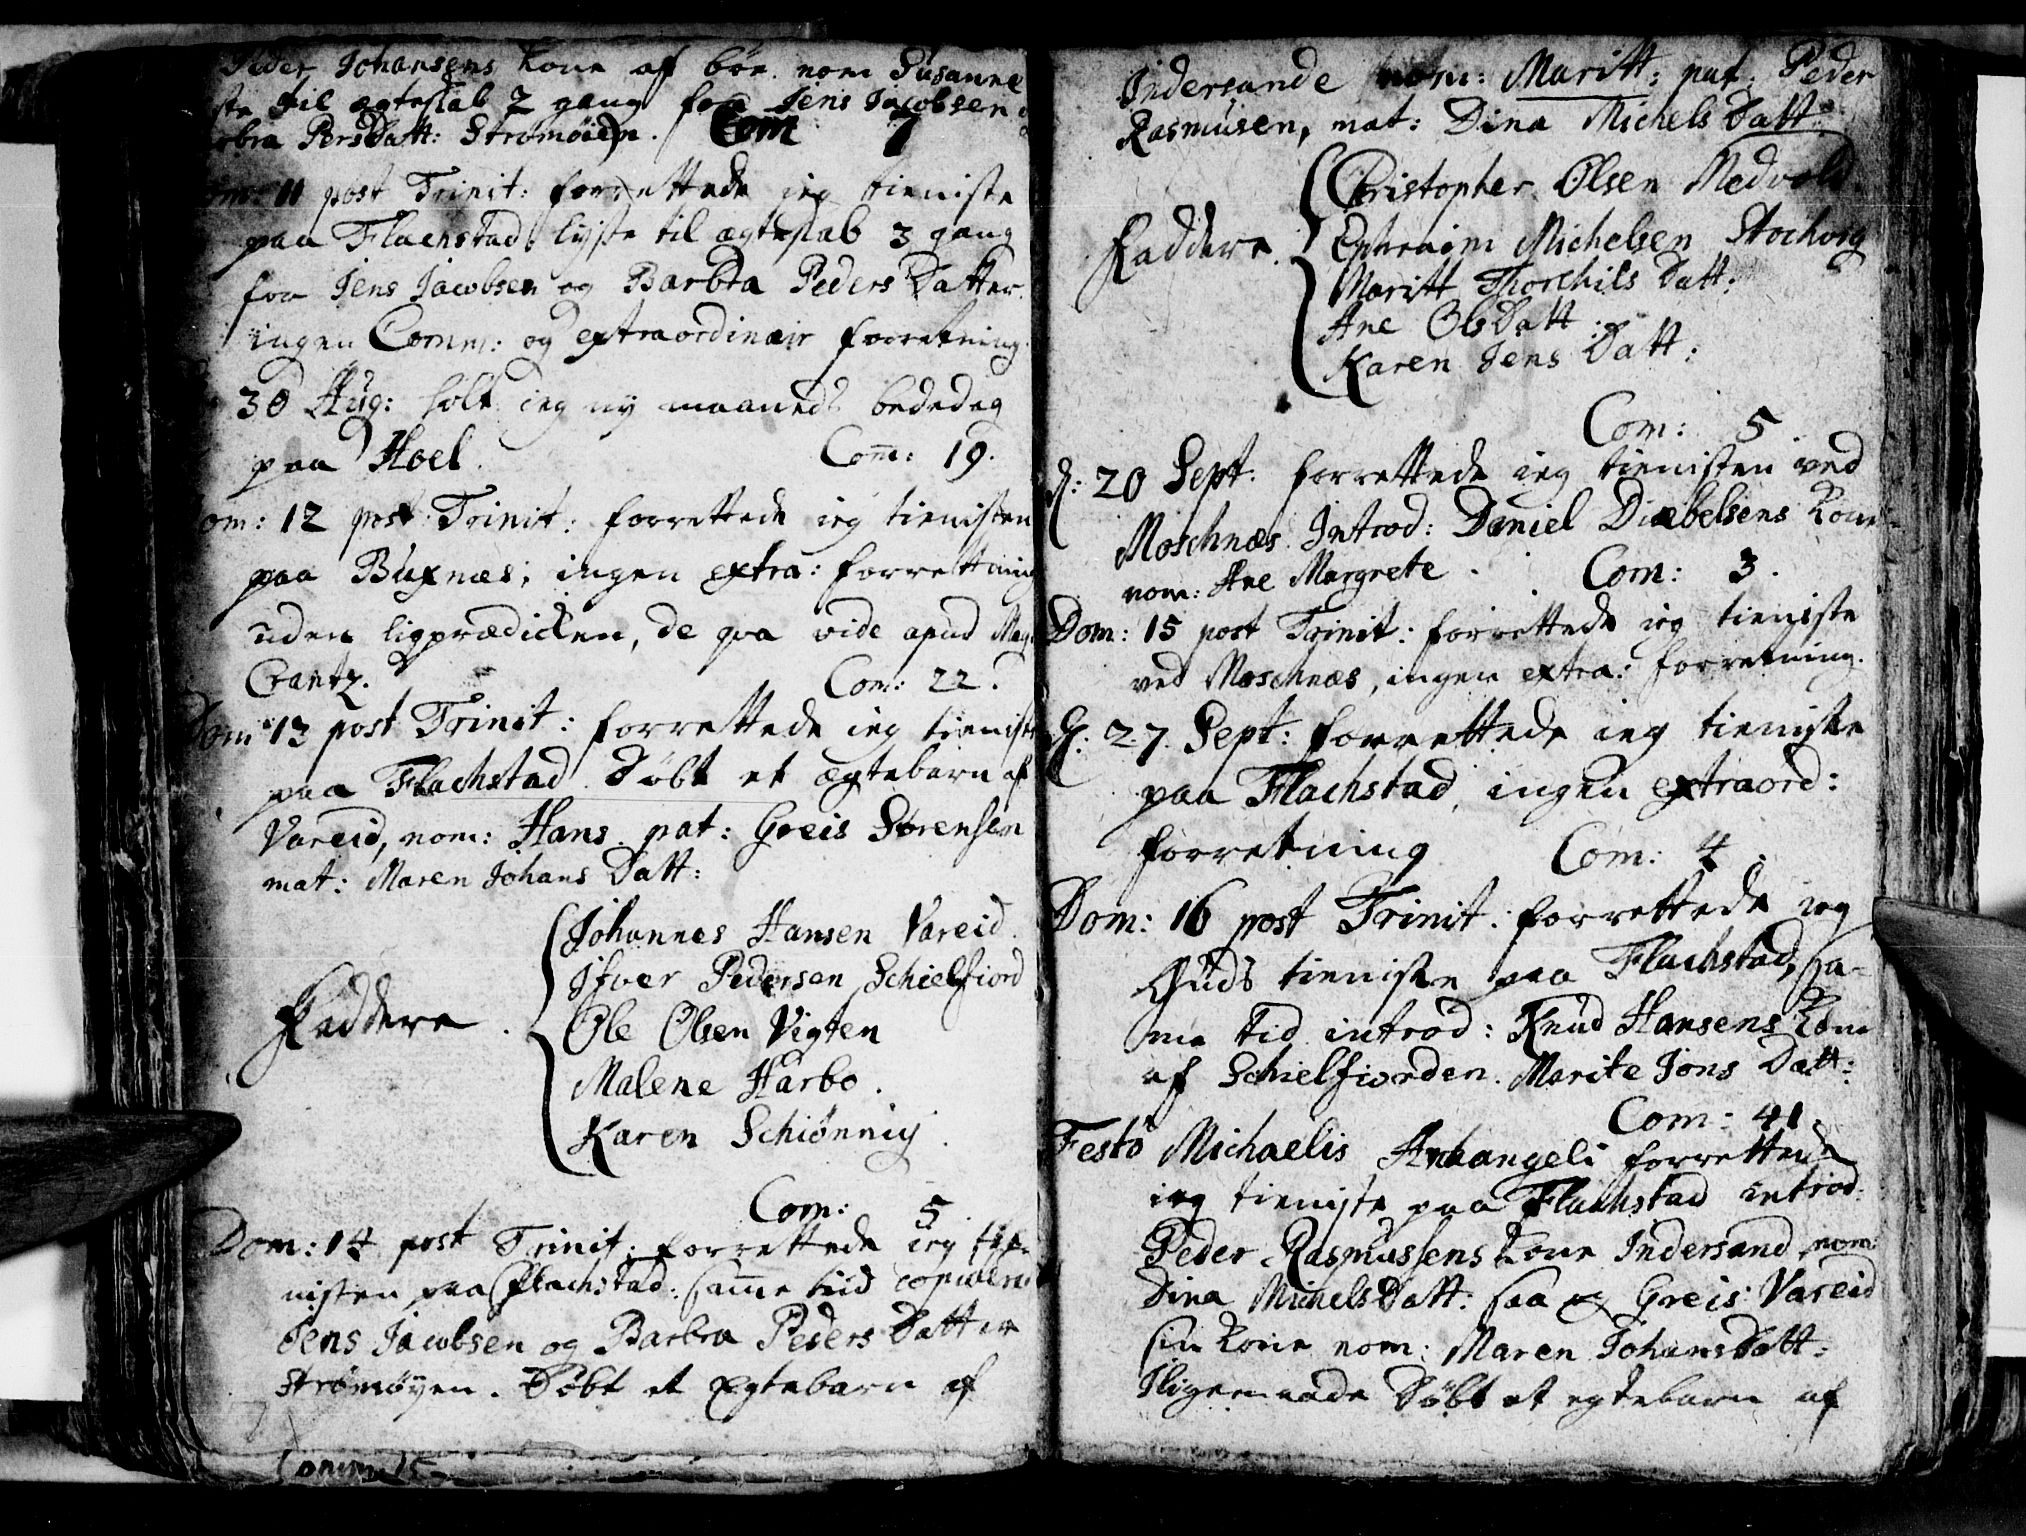 Peder Johansens kone af bøe. nom Susanne
ste til ægteskab 2 gang for Jens Jacobsen
bra PersDatt: Strømøien. Com 7
om: 11 post Trinit: forrettede ieg tieniste
paa Flachstad, lyste til ægteskab 3 gang
for Jens Jacobsen og Barbra Peders Datter.
ingen Comm: og extraordinair forretning.
30 Aug: holt ieg ny maaneds bededag
paa Hoel. Com: 19.
om: 12 post Trinit: forrettede ieg tienisten
paa Buxnæs; ingen extra: forrettning
uden ligprædicken, de qva vide apud Mag
Crantz. Com: 22.
Dom 13 post Trinit: forrettede ieg tieniste
paa Flachstad. Døbt et ægtebarn af
Vareid, nom: Hans pat: Greis Sørensen
mat: Maren Johans Datt:
Faddere.
Johannes Hansen Vareid.
Ifver Pedersen Schielfiord
Ole Olsen Vigten
Malene Harbo.
Karen Schiønnig.
Com: 5
Dom: 14 post Trinit: forrettede ieg tie-
nisten paa Flachstad: same tiid copulered
Jens Jacobsen og Barbra Peders Datter
Strømøyen. Døbt et Ægtebarn af
Indersande nom: Maritt: pat: Peder
Rasmusen, mat: Dina Michels Datt:
Faddere.
Christopher Olsen Nedvold.
Ephraim Michelsen Stochvig
Maritt Thorchils Datt:
Ane OlsDatt:
Karen Jens Datt:
Com: 5
d: 20 Sept. forrettede ieg tienisten ved
Moschnæs. Introd: Daniel Diæbelsens kone
nom: Ane Margrete. Com: 3.
Dom: 15 post Trinit: forrettede ieg tieniste
ved Moschnæs, ingen extra: forretning.
d. 27. Sept: forrettede ieg tieniste
paa Flachstad, ingen extraord:
forretning Com: 4.
Dom: 16 post Trinit: forrettede ieg
Guds tieniste paa Flachstad, sa-
me tid introd: Knud Hansens kone
af Schielfiorden. Marite Jons Datt:
Com: 41.
Festo Michaelis Archangeli forrettede
ieg tieniste paa Flachstad introd:
Peder Rasmussens kone Indersand nom:
Dina MichelsDatt: saa og Greis Vareid
sin kone nom: Maren JohansDatt:
Iligemaade Døbt et egtebarn af